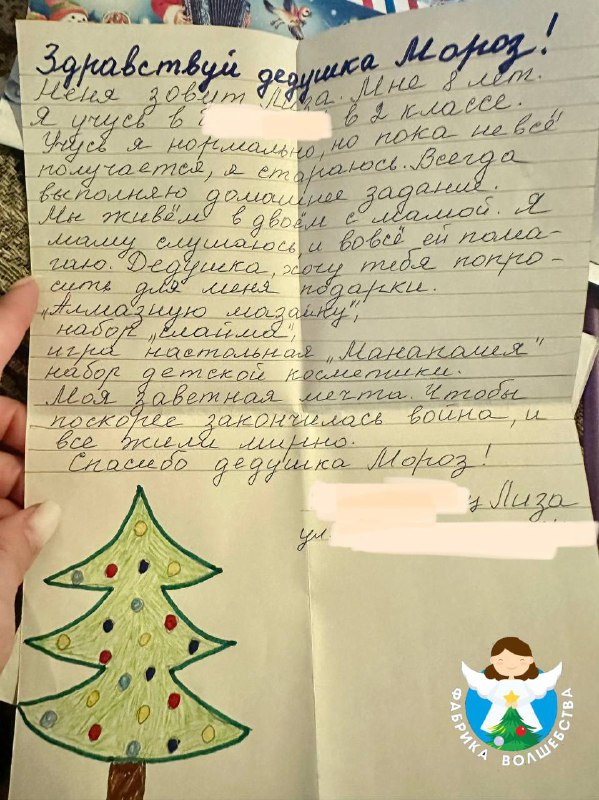 Здравствуй дедушка Мороз!
Меня зовут Лиза. Мне 8 лет.
Я учусь в в 2 классе.
Учусь я нормально, но пока не всё
получается, я стараюсь. Всегда
выполняю домашнее задание.
Мы живём в двоём с мамой. Я
маму слушаюсь, и вовсё ей пома-
гаю. Дедушка, хочу тебя попро-
сить для меня подарки.
„Алмазную мазайку",
набор „слайма",
игра настольная „Манапалия"
набор детской косметики.
Моя заветная мечта. Чтобы
поскорее закончилась война, и
все жили мирно.
Спасибо дедушка Мороз!
ц Лиза
ул.
ФАБРИКА ВОЛШЕБСТВА